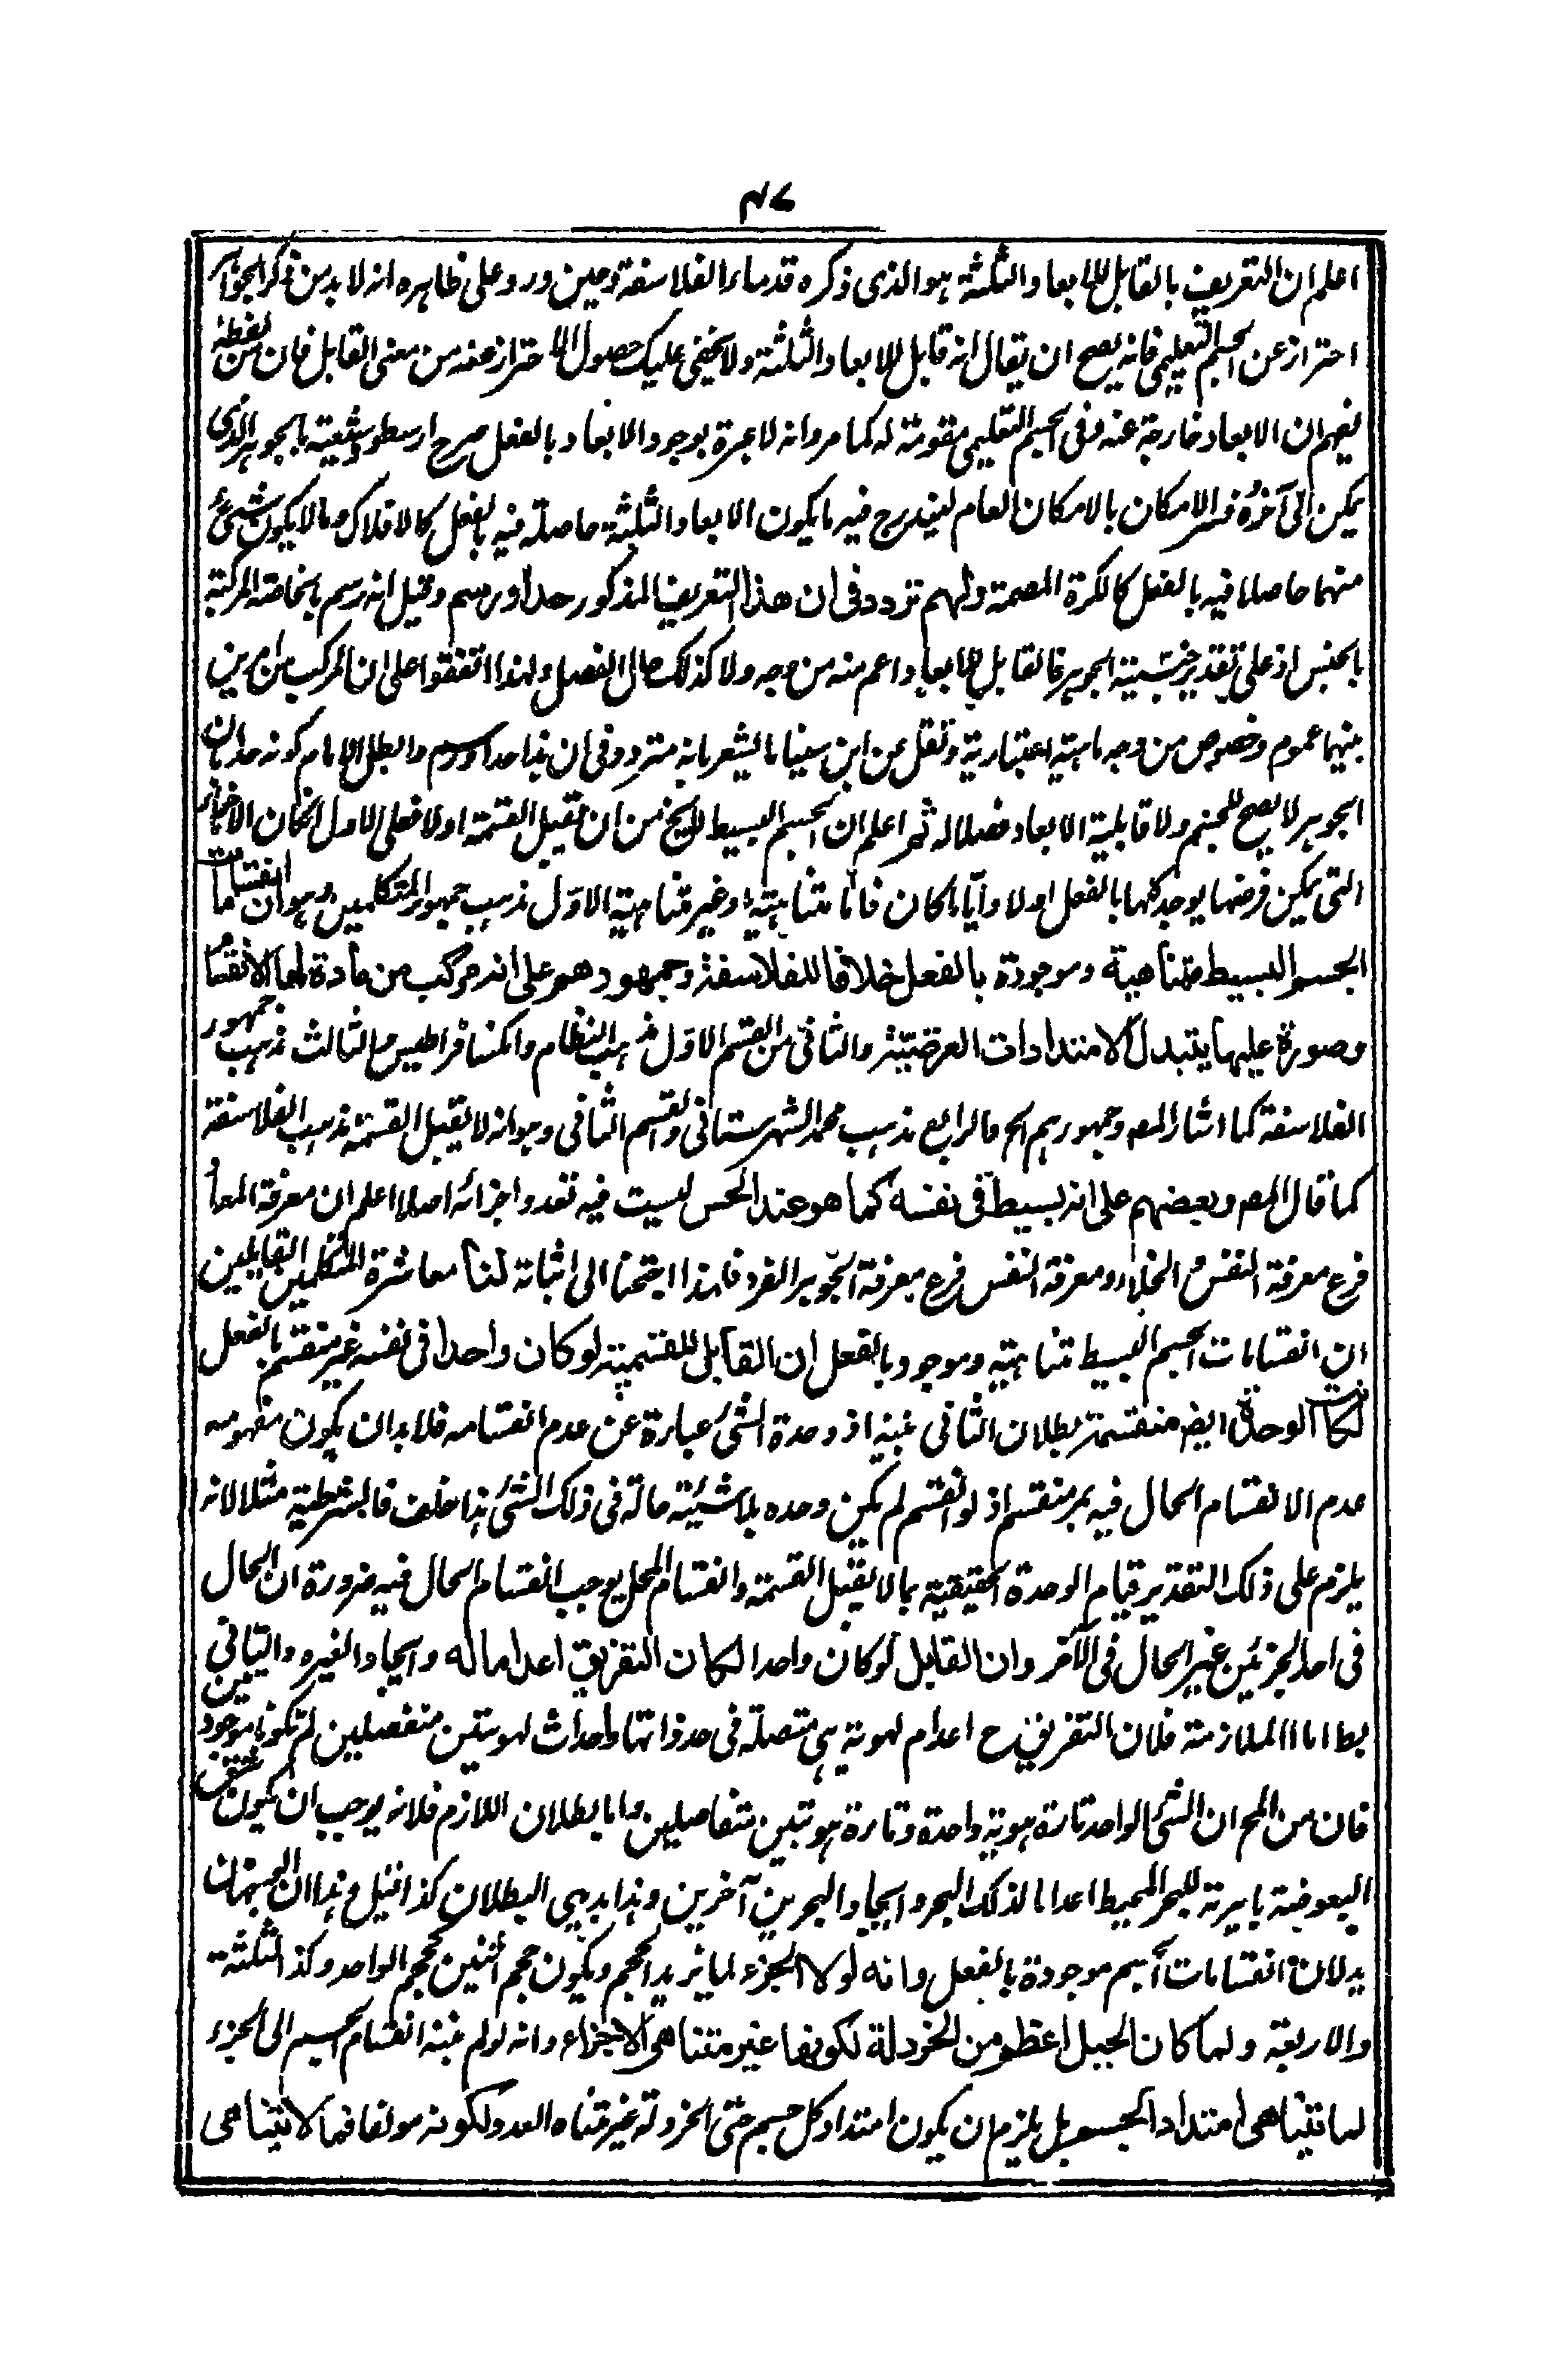 ٤٧
اعلم ان التعريف بالقابل للابعاد الثلثة هو الذي ذكره قدماء الفلاسفة وحين ورد على ظاهره انه لا بد من ذكر الجوهر
احتراز عن الجسم التعليمي فانه يصح ان يقال انه قابل للابعاد الثلثة ولا يخفى عليك حصول الاحتراز عنه من معنى القابل فان من لفظه
يفهم ان الابعاد خارجة عنه وفي الجسم التعليمي مقومة له كما مر وانه لا عبرة بوجود الابعاد بالفعل صرح ارسطو وشيعته بالجوهر الذي
يمكن الى آخره وفسر الامكان بالامكان العام ليندرج فيه ما يكون الابعاد الثلثة حاصلة فيه بالفعل كالافلاك وما لا يكون شيئ
منهما حاصلا فيه بالفعل كالكرة المصمتة ولهم تردد في ان هذا التعريف المذكور حد او رسم وقيل انه رسم بالخاصة المركبة
بالجنس اذ على تقدير جنسية الجوهر فالقابل للابعاد اعم منه من وجه ولا كذلك حال الفصل ولهذا اتفقوا على ان المركب من امرين
بينهما عموم وخصوص من وجه ماهية اعتبارية ونقل عن ابن سينا ما يشعر بانه متردد في ان هذا حد او رسم وابطل الامام كونه حدا بان
الجوهر لا يصح للجنس ولا قابلية الابعاد فصلا له ثم اعلم ان الجسم البسيط لا يخ من ان يقبل القسمة اولا فعلى الاول اكان الانقسامات
التي يمكن فرضها يوجد كلها بالفعل اولا وآيا ما كان فاما متناهية او غير متناهية الاول مذهب جمهور المتكلمين وهو ان انقسامات
الجسم البسيط متناهية وموجودة بالفعل خلافا للفلاسفة وجمهورهم على انه مركب من مادة لها الانقسام
وصورة عليها يتبدل الامتدادات العرضية والثاني من القسم الاول مذهب النظام وانكسافراطيس والثالث مذهب جمهور
الفلاسفة كما اشار المصـ وجمهورهم الخ والرابع مذهب محمد الشهرستاني والقسم الثاني وهو انه لا يقبل القسمة مذهب الفلاسفة
كما قال المصـ وبعضهم على انه بسيط في نفسه كما هو عند الحس ليست فيه تعدد اجزائه اصلا اعلم ان معرفة المعاد
فرع معرفة النفس والخلاء ومعرفة النفس فرع معرفة الجوهر الفرد فلهذا احتجنا الى اثباته لنا معاشرة المتكلمين القايلين
ان انقسامات الجسم البسيط متناهية وموجود بالفعل ان القابل للقسمة لو كان واحدا في نفسه غير منقسم بالفعل
لكانت الوحدة ايضـ منقسمة بطلان الثاني غنية اذ وحدة الشئ عبارة عن عدم انقسامه فلا بد ان يكون مفهومه
عدم الانقسام الحال فيه بمر منقسم اذ لو انقسم لم يكن وحده بلا شيئية حالة في ذلك الشئ هذا خلف فالشرطية مثلا لانه
يلزم على ذلك التقدير قيام الوحدة الحقيقية بما لا يقبل القسمة وانقسام المحل يوجب انقسام الحال فيه ضرورة ان الحال
في احد الجزئين غير الحال في الآخر وان القابل لو كان واحدا لكان التفريق اعداما له وايجادا لغيره والثاني
بط اما الملازمة فلان التفريق ح اعدام لهوية هي متصلة في حد ذاتها واحداث لهويتين منفصلين لم تكونا موجودتين
فان من المح ان الشئ الواحد تارة هوية واحدة وتارة هويتين متفاصلين واما بطلان اللازم فلانه يوجب ان يكون شق
البعوضة بابرته للبحر المحيط اعداما لذلك البحر وايجاد البحرين آخرين وهذا بديهي البطلان كذا قيل وهذا ان الوجهان
يدلان انقسامات الجسم موجودة بالفعل وانه لولا الجزء لما يزيد الحجم ويكون حجم اثنين كحجم الواحد وكذا الثلثة
والاربعة ولما كان الجبل اعظم من الخردلة لكونهما غير متناهي الاجزاء وانه لو لم ينته انقسام الجسم الى الجزء
لما تناهى امتداد الجسم بل يلزم ان يكون امتداد كل جسم حتى الخردلة غير متناه العدد لكونه مولفا فيما لا يتناهى